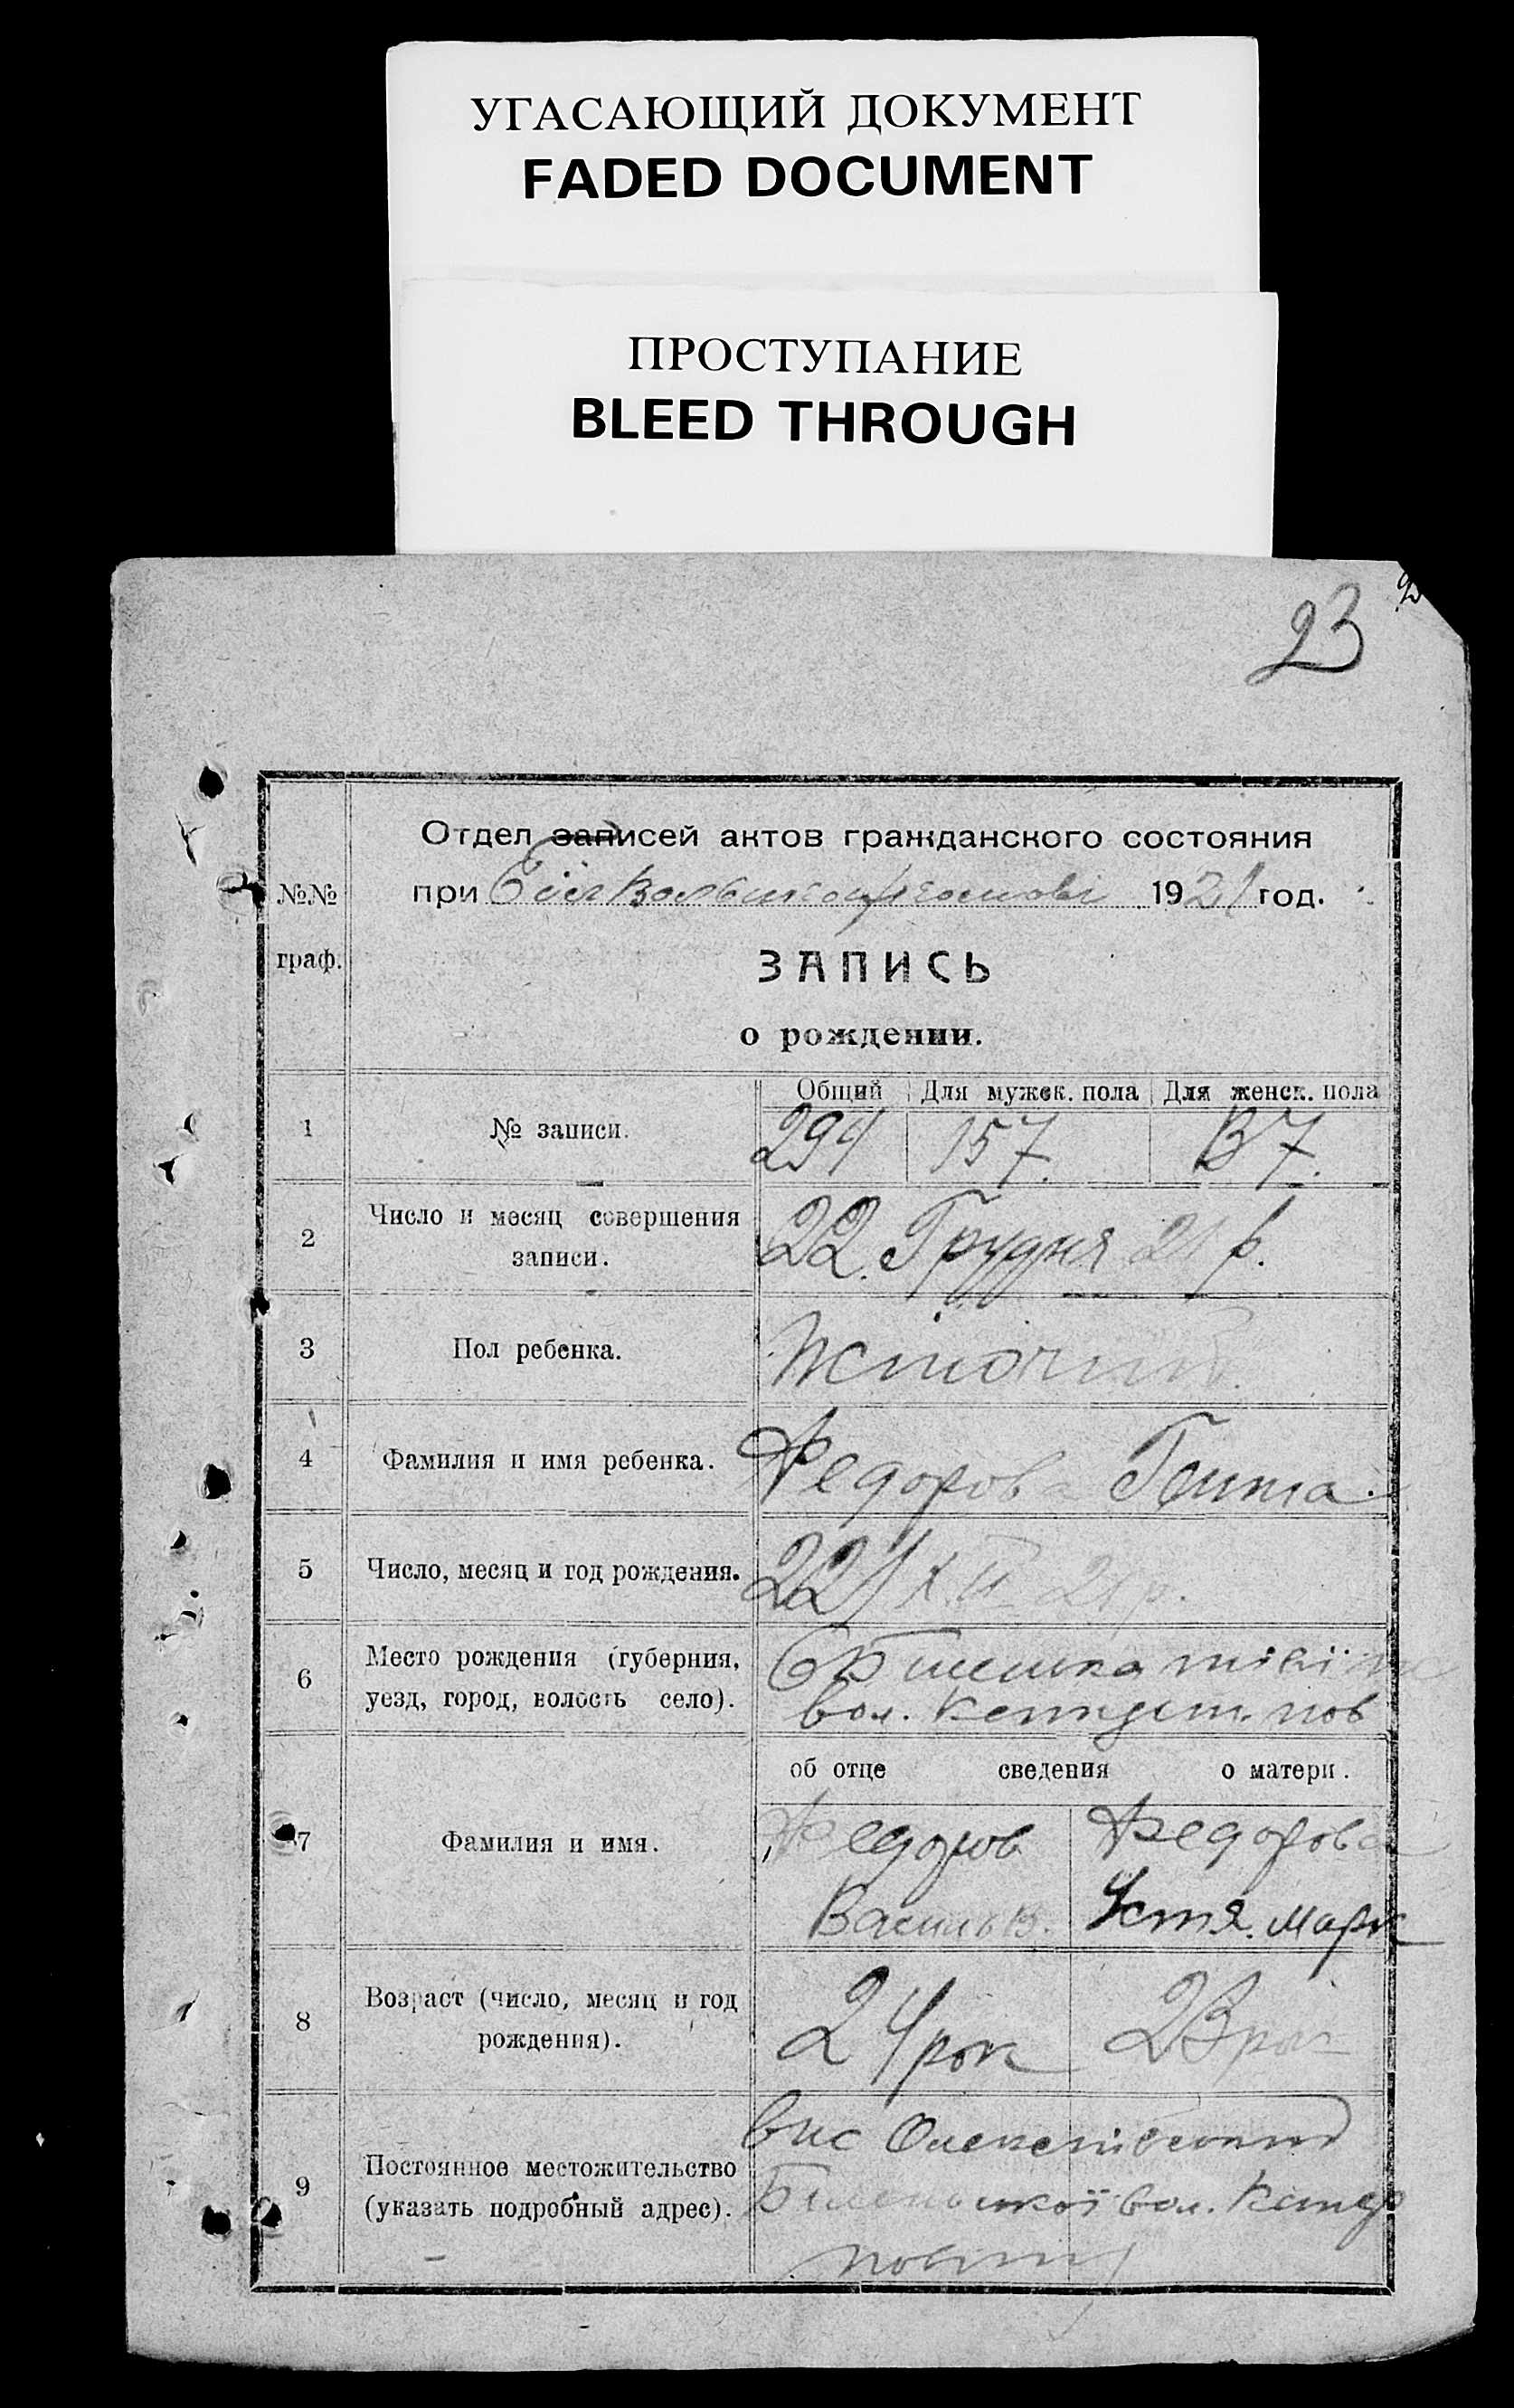 УГАСАЮЩИЙ ДОКУМЕНТ
FADED DOCUMENT
ПРОСТУПАНИЕ
BLEED THROUGH
23
Отдел записей актов гражданского состояния
при 1921 год.
№№
граф.
ЗАПИСЬ
о рождении.
Общий Для мужск. пола Для женск. пола
1 № записи. 294 157. 137.
2 Число и месяц совершения
записи.
22. Грудня 21 р.
3 Пол ребенка. Жіночий
4 Фамилия и имя ребенка. Федорова
5 Число, месяц и год рождения. 22/XII 21 р.
6 Место рождения (губерния,
уезд, город, волость село).
вол. пов
об отце сведения о матери.
7 Фамилия и имя. Федоров Федорова
Устя. Марк
8 Возраст (число, месяц и год
рождения).
24 рок 23 рок
9 Постоянное местожительство
(указать подробный адрес).
вол.